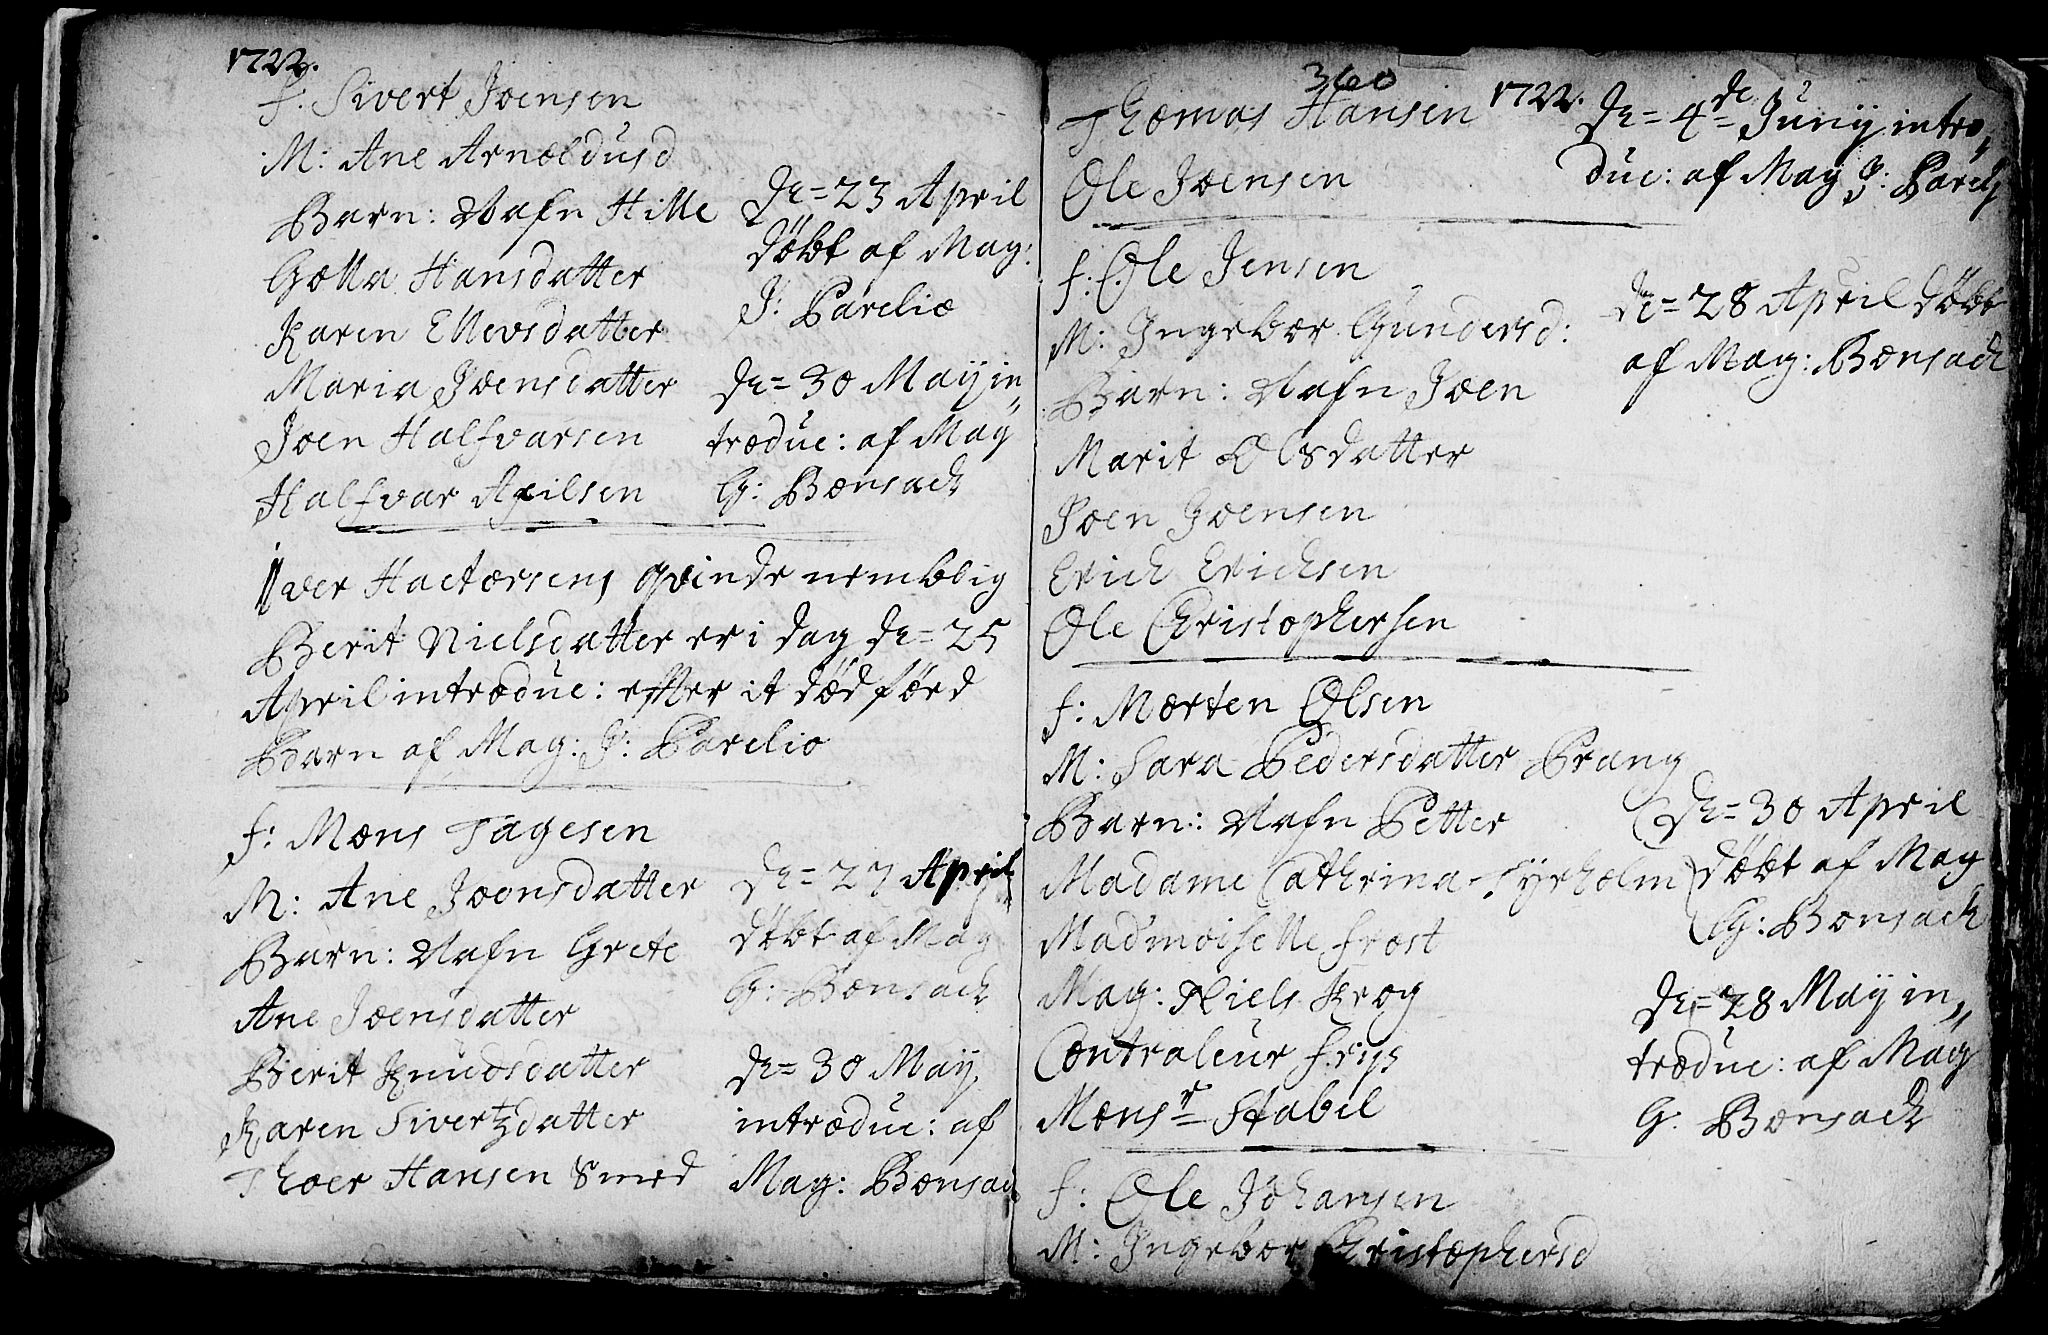 1722.
f: Sivert Joensen
M: Ane Arnoldusd
Barn: Nafn Hille
Golla Hansdatter
Karen Ellevsdatter
Maria Joensdatter
Joen Halfvarsen
Halfvar Axilsen
de= 23 April
døbt af Mag:
J: Parelio
de= 30 Maij in„
troduc: af Mag
G: Bonsach
Iver Hactorsens qvinde nemblig
Berit Nielsdatter er i dag de= 25
April introduc: efter it død förd
Barn af Mag: J: Parelio
f: Mons Tagesen
M: Ane Joonsdatter
Barn: Nafn Grete
Ane Joensdatter
Berit Knudsdatter
Karen Sivertzdatter
Thoer Hansen Smed
de= 27 April
døbt af Mag
G: Bonsach
de= 30 Maij
introduc: af
Mag: Bonsac
360
1722.
Thomas Hansen
Ole Joensen
de= 4de Junij intro„
duc: af Mag J: Parely
f: Ole Jensen
M: Ingebor Gundersd:
Barn: Nafn Joen
Marit Olsdatter
Joen Joensen
Erich Erichsen
Ole Christophersen
de= 28 April døbt
af Mag: Bonsach
f: Morten Olsen
M: Sara Pedersdatter Prang
Barn: Nafn Petter
Madame Cathrina Tyrholm
Madmoiselle Frost
Mag: Niels Krog
Contraleur Friis
Monsr Stabel
de= 30 April
døbt af Mag
G: Bonsach
de= 28 Maij in„
troduc: af Mag
G: Bonsach
f: Ole Johansen
M: Ingebor Christophersd